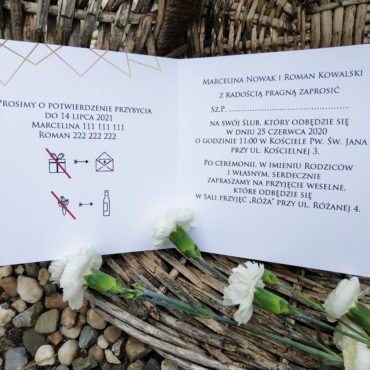 Prosimy o potwierdzenie przybycia
do 14 lipca 2021
Marcelina 111 111 111
Roman 222 222 222
Marcelina Nowak i Roman Kowalski
z radością pragną zaprosić
Sz.P. ...............................................
na swój ślub, który odbędzie się
w dniu 25 czerwca 2020
o godzinie 11:00 w Kościele Pw. Św. Jana
przy ul. Kościelnej 3.
Po ceremonii, w imieniu Rodziców
i własnym, serdecznie
zapraszamy na przyjęcie weselne,
które odbędzie się
w Sali przyjęć „Róża” przy ul. Różanej 4.